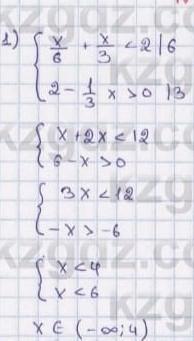 1) { x/6 + x/3 < 2 | 6
2 - 1/3 x > 0 | 3
{ x + 2x < 12
6 - x > 0
{ 3x < 12
-x > -6
{ x < 4
x < 6
x ∈ (-∞; 4)